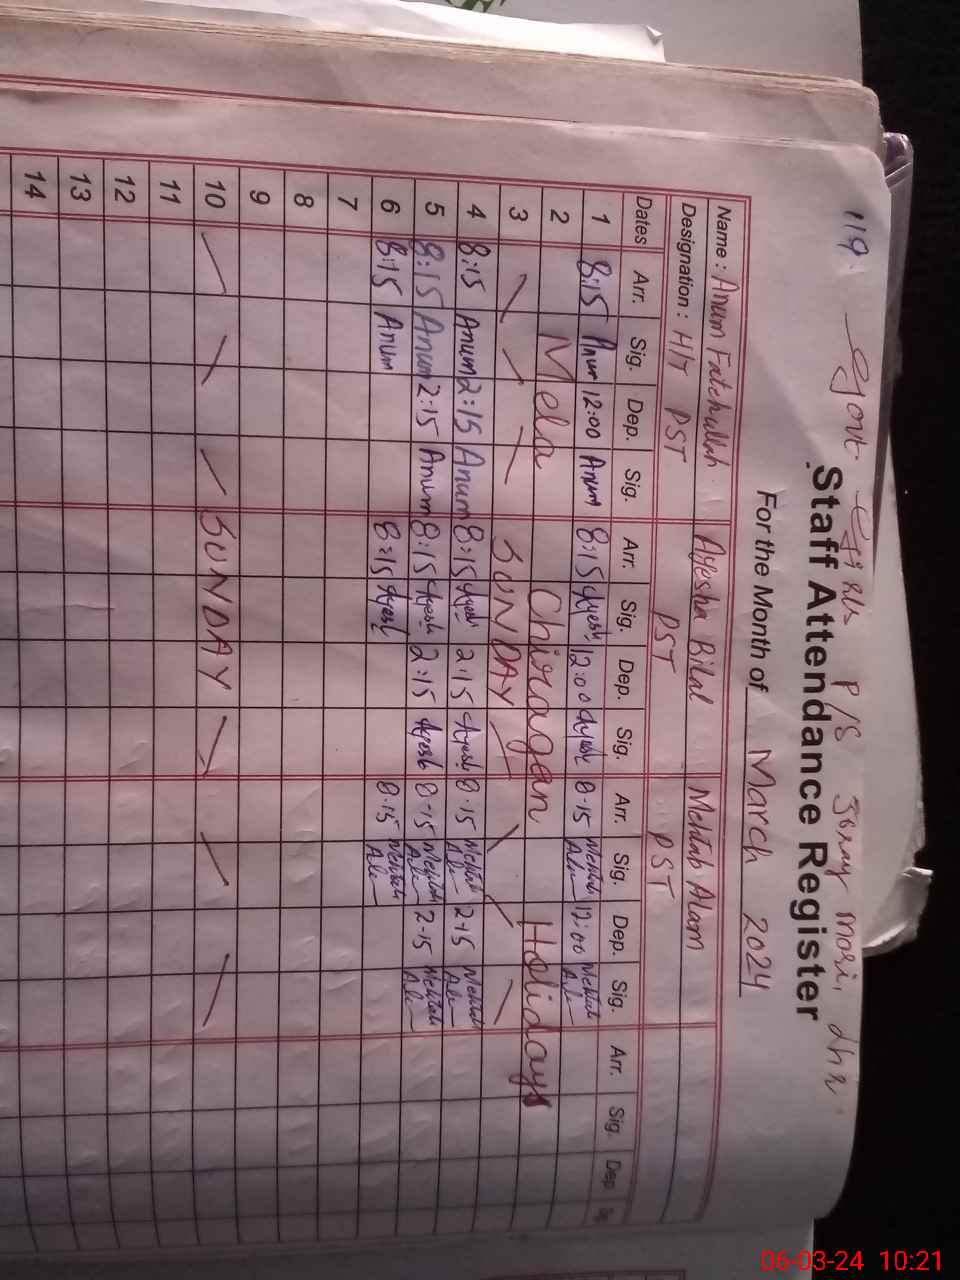 119. Govt. Girls P/S Jenay mori, dhr
Staff Attendance Register
For the Month of March 2024
Name: Anum Fatehullah Ayesha Bilal Mehtab Alam
Designation: H/T PST PST PST
Dates Arr. Sig. Dep. Sig. Arr. Sig. Dep. Sig. Arr. Sig. Dep. Sig. Arr. Sig. Dep
1 8:15 Anum 12:00 Anum 8:15 Ayesh 12:00 Ayesh 8-15 Mehtab 12:00 Mehtab
2 Mela Chiragan Holidays
3 SUNDAY
4 8:15 Anum 2:15 Anum 8:15 Ayesh 2:15 Ayesh 8.15 Mehtab 2-15 Mehtab
5 8:15 Anum 2:15 Anum 8:15 Ayesh 2:15 Ayesh 8-15 Mehtab 2-15 Mehtab
6 8:15 Anum 8:15 Ayesh 8.15 Mehtab
7
8
9
10 SUNDAY
11
12
13
14
06-03-24 10:21